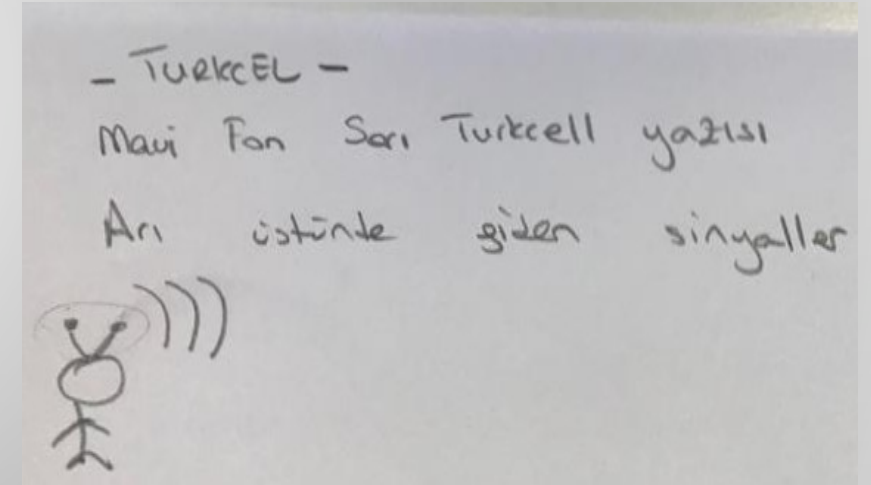 - TURKCEL -
Mavi Fon Sarı Turkcell yazısı
Arı üstünde giden sinyaller